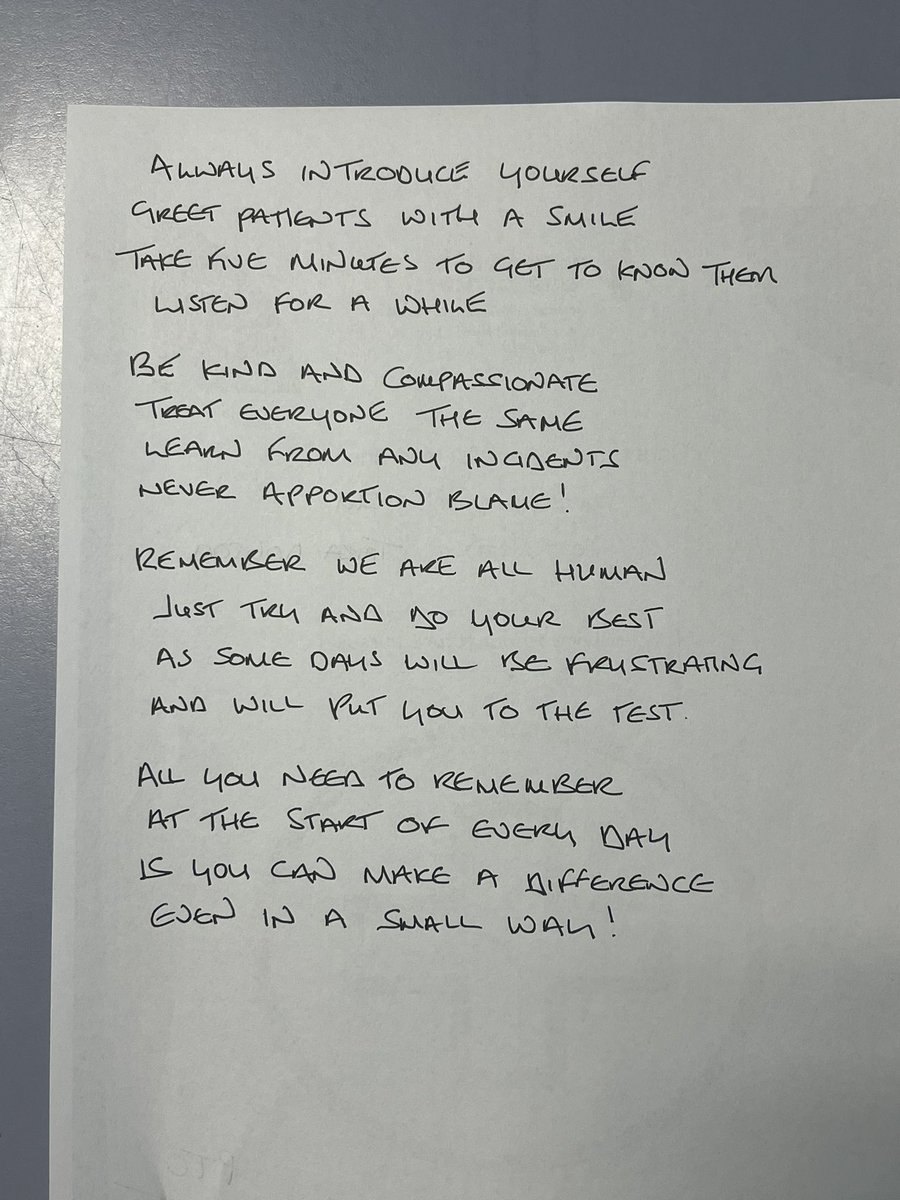 ALWAYS INTRODUCE YOURSELF
GREET PATIENTS WITH A SMILE
TAKE FIVE MINUTES TO GET TO KNOW THEM
LISTEN FOR A WHILE
BE KIND AND COMPASSIONATE
TREAT EVERYONE THE SAME
LEARN FROM ANY INCIDENTS
NEVER APPORTION BLAME!
REMEMBER WE ARE ALL HUMAN
JUST TRY AND DO YOUR BEST
AS SOME DAYS WILL BE FRUSTRATING
AND WILL PUT YOU TO THE TEST.
ALL YOU NEED TO REMEMBER
AT THE START OF EVERY DAY
IS YOU CAN MAKE A DIFFERENCE
EVEN IN A SMALL WAY!